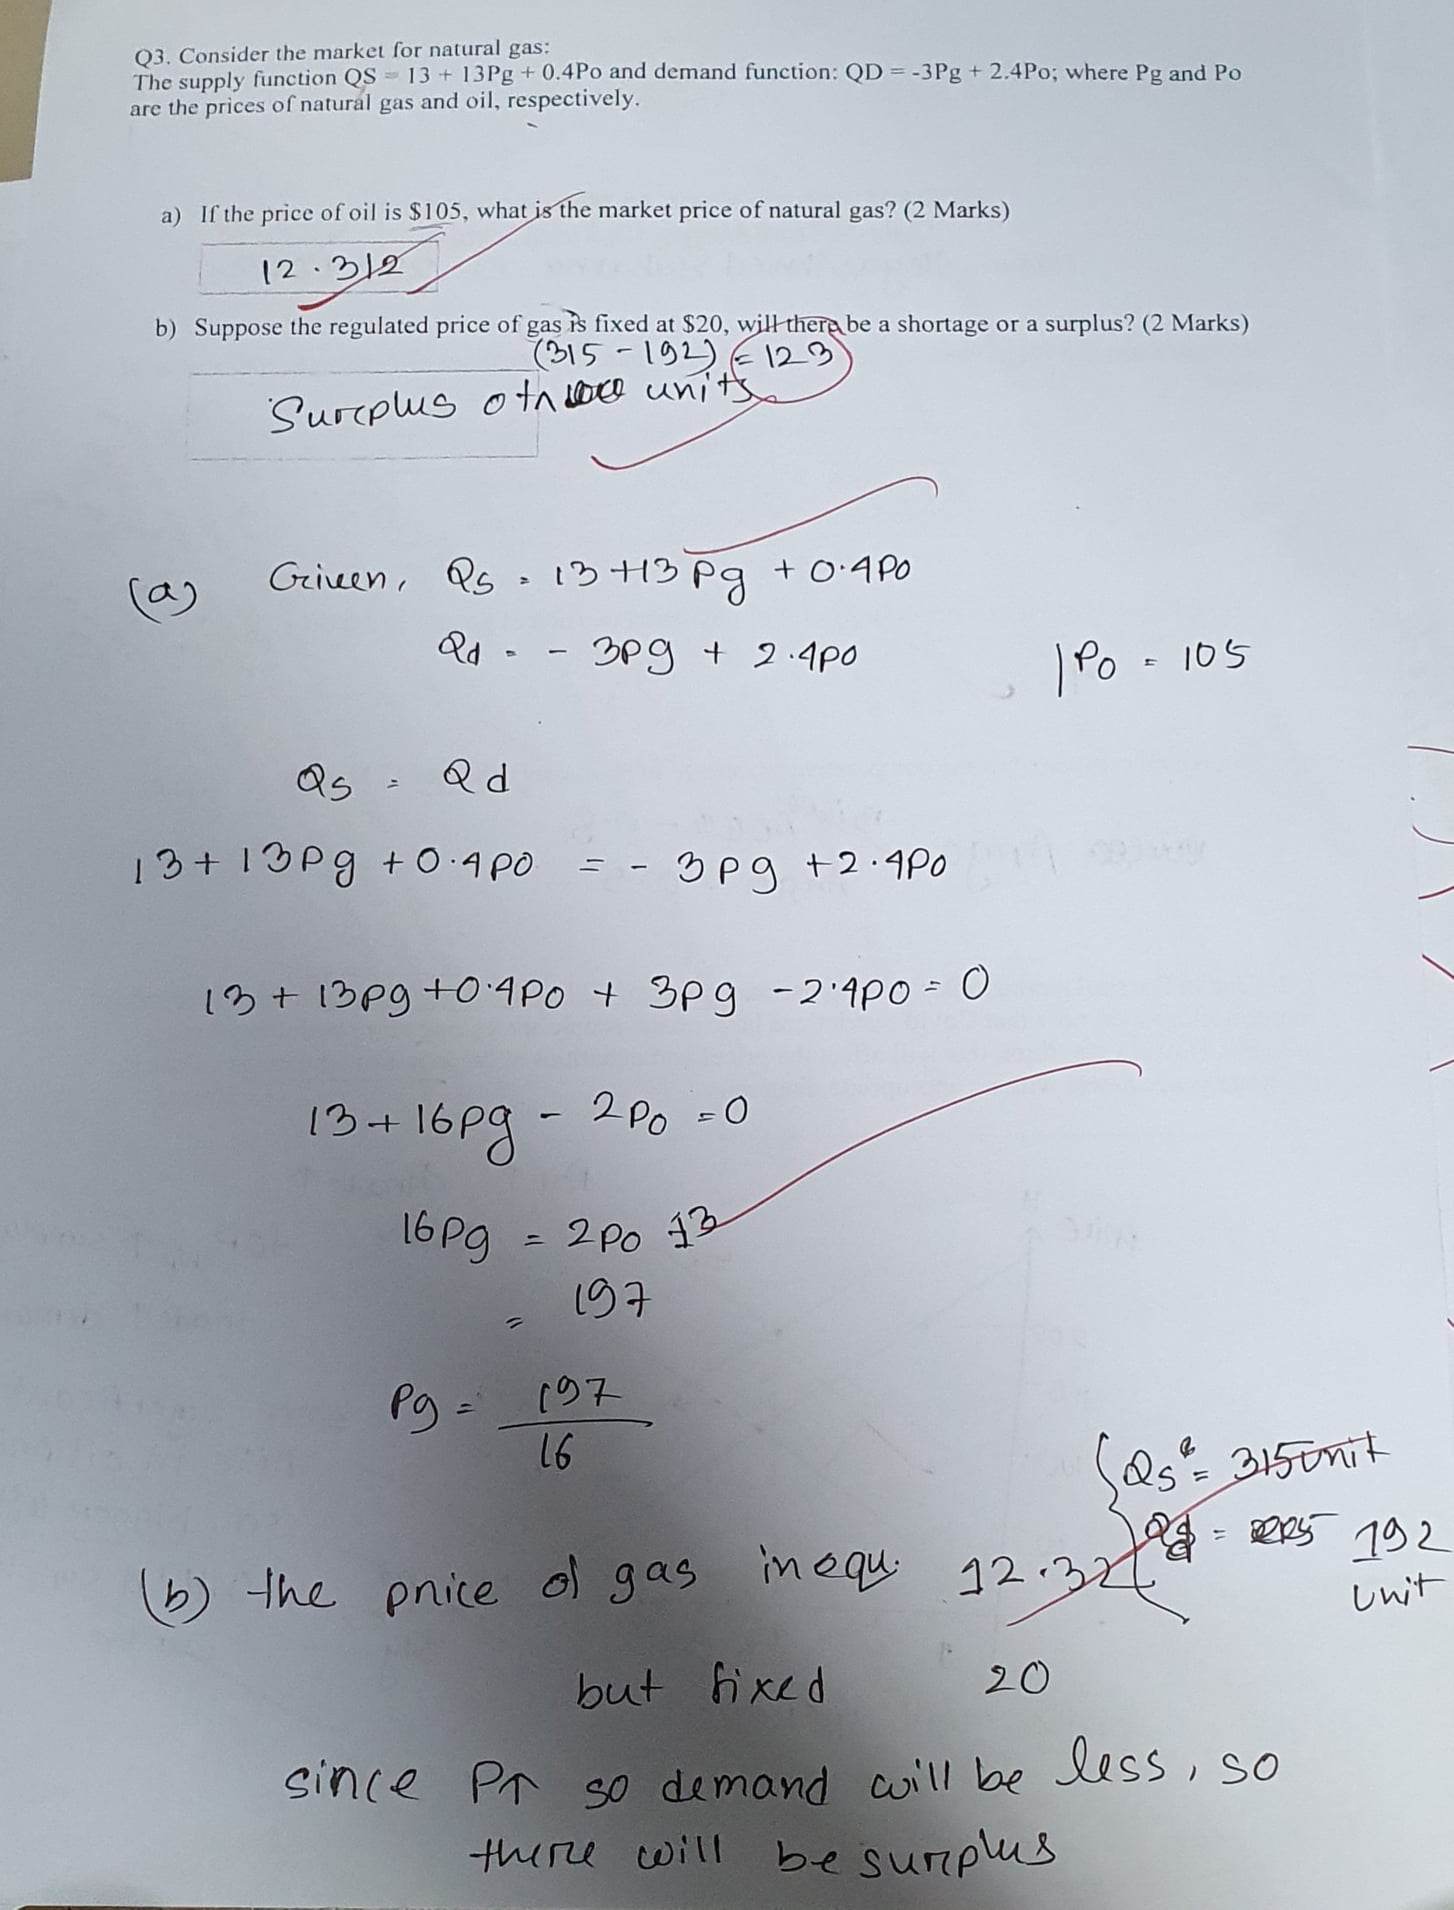 Q3. Consider the market for natural gas:
The supply function QS = 13 + 13Pg + 0.4Po and demand function: QD = -3Pg + 2.4Po; where Pg and Po
are the prices of natural gas and oil, respectively.
a) If the price of oil is $105, what is the market price of natural gas? (2 Marks)
12.312
b) Suppose the regulated price of gas is fixed at $20, will there be a shortage or a surplus? (2 Marks)
(315 - 192) = 123
Surplus of units
(a) Given, Qs = 13 + 13Pg + 0.4Po
Qd = - 3Pg + 2.4Po | Po = 105
Qs = Qd
13 + 13Pg + 0.4Po = - 3Pg + 2.4Po
13 + 13Pg + 0.4Po + 3Pg - 2.4Po = 0
13 + 16Pg - 2Po = 0
16Pg = 2Po - 13
= 197
Pg = 197
16
Qs = 315 unit
Qd = 192
unit
(b) the price of gas in equ. 12.32
but fixed 20
since P↑ so demand will be less, so
there will be surplus